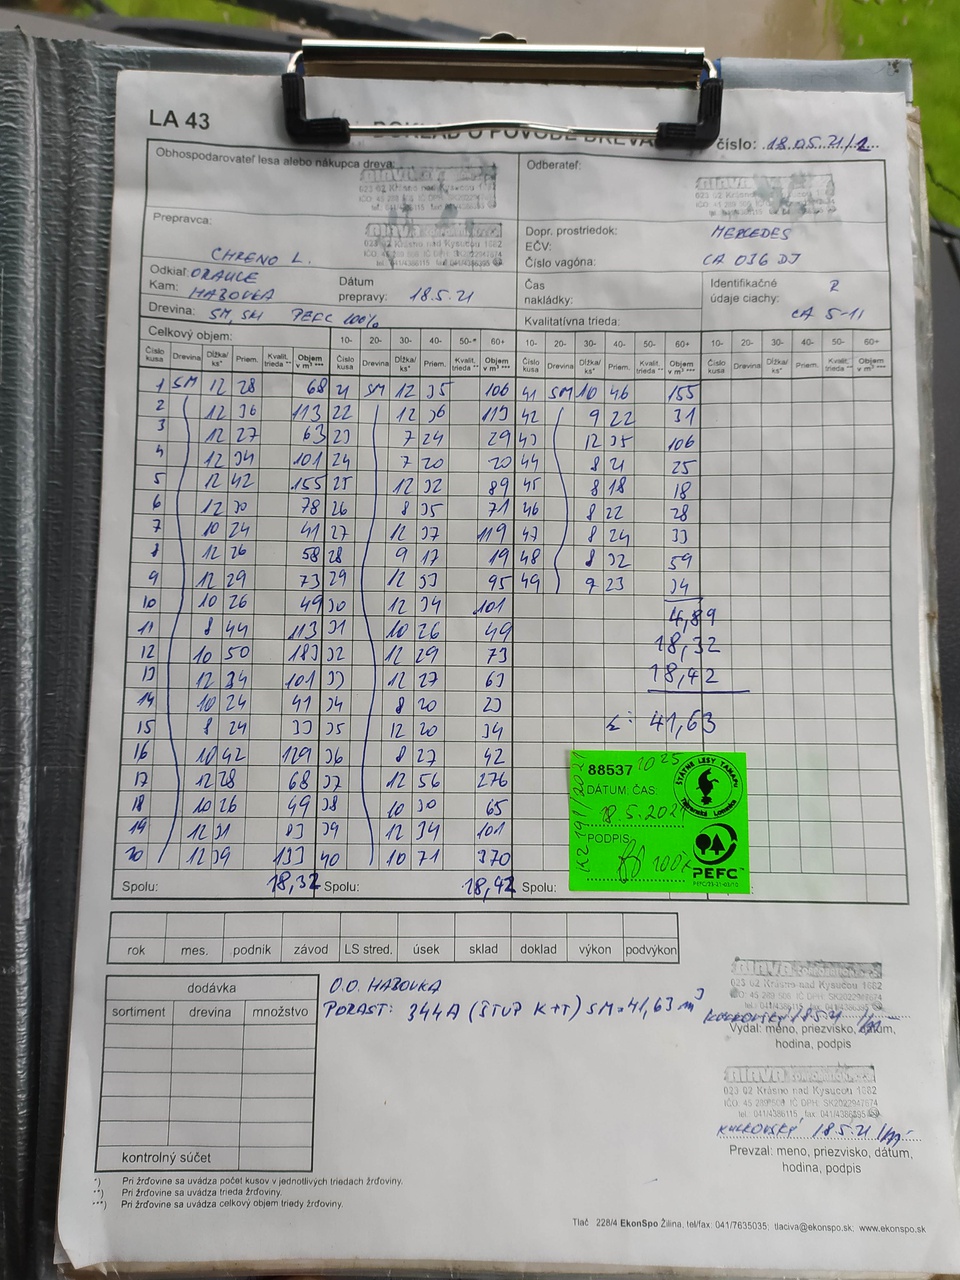 LA 43
DOKLAD O PÔVODE DREVA
číslo: 18.05.21/2
Obhospodarovateľ lesa alebo nákupca dreva:
023 02 Krásno nad Kysucou 1682
Odberateľ:
023 02 Krásno nad Kysucou 1682
Prepravca:
023 02 Krásno nad Kysucou 1682
CHRENO L.
Dopr. prostriedok: MERCEDES
EČV:
Číslo vagóna: CA 036 DJ
Odkiaľ: ORAVICE
Kam: HABOVKA
Dátum prepravy: 18.5.21
Čas nakládky:
Identifikačné údaje ciachy: R
CA 5-11
Drevina: SM, SM PEFC 100%
Kvalitatívna trieda:
Celkový objem: 10- 20- 30- 40- 50-* 60+ 10- 20- 30- 40- 50- 60+ 10- 20- 30- 40- 50- 60+
Číslo kusa Drevina Dĺžka/ks* Priem. Kvalit. trieda ** Objem v m³ *** Číslo kusa Drevina Dĺžka/ks* Priem. Kvalit. trieda ** Objem v m³ *** Číslo kusa Drevina Dĺžka/ks* Priem. Kvalit. trieda ** Objem v m³ *** Číslo kusa Drevina Dĺžka/ks* Priem. Kvalit. trieda ** Objem v m³ ***
1 SM 12 28 68 21 SM 12 35 106 41 SM 10 46 155
2 12 36 113 22 12 36 113 42 9 22 31
3 12 27 63 23 7 24 29 43 12 35 106
4 12 34 101 24 7 20 20 44 8 21 25
5 12 42 155 25 12 32 89 45 8 18 18
6 12 30 78 26 8 35 71 46 8 22 28
7 10 24 41 27 12 37 119 47 8 24 33
8 12 26 58 28 9 17 19 48 8 32 59
9 12 29 73 29 12 33 95 49 9 23 34
10 10 26 49 30 12 34 101
4,89
11 8 44 113 31 10 26 49
18,32
12 10 50 183 32 12 29 73
18,42
13 12 34 101 33 12 27 63
14 10 24 41 34 8 20 23
Σ: 41,63
15 8 24 33 35 12 20 34
16 10 42 129 36 8 27 42
17 12 28 68 37 12 56 276
18 10 26 49 38 10 30 65
19 12 31 83 39 12 34 101
20 12 39 133 40 10 71 370
Spolu: 18,32 Spolu: 18,42 Spolu:
88537 10 25
DÁTUM: ČAS:
18.5.2021
PODPIS:
100%
KZ 191/2021
ŠTÁTNE LESY TANAPU
Tatranská Lomnica
PEFC
PEFC/23-21-03/10
rok mes. podnik závod LS stred. úsek sklad doklad výkon podvýkon
dodávka
sortiment drevina množstvo
kontrolný súčet
O.O. HABOVKA
PORAST: 344A (ŠTUP K+T) SM=41,63 m³
023 02 Krásno nad Kysucou 1682
IČO: 45 289 506 IČ DPH: SK2022947674
18.5.21
Vydal: meno, priezvisko, dátum,
hodina, podpis
023 02 Krásno nad Kysucou 1682
IČO: 45 289 506 IČ DPH: SK2022947674
tel.: 041/4386115, fax: 041/4386395
18.5.21
Prevzal: meno, priezvisko, dátum,
hodina, podpis
*) Pri žrďovine sa uvádza počet kusov v jednotlivých triedach žrďoviny.
**) Pri žrďovine sa uvádza trieda žrďoviny.
***) Pri žrďovine sa uvádza celkový objem triedy žrďoviny.
Tlač 228/4 EkonSpo Žilina, tel/fax: 041/7635035; tlaciva@ekonspo.sk; www.ekonspo.sk